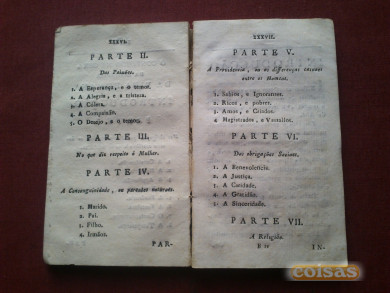 XXXVI.
PARTE II.
Das Paixões.
1. A Esperança, e o temor.
2. A Alegria, e a tristeza.
3. A Cólera.
4. A Compaixão.
5. O Desejo, e o amor.
PARTE III.
No que diz respeito á Mulher.
PARTE IV.
A Consanguinidade, ou parentes naturaes.
1. Marido.
2. Pai.
3. Filho.
4. Irmãos.
PAR-
XXXVII.
PARTE V.
A Providencia, ou as differenças
entre os Homens.
1. Sabios, e Ignorantes.
2. Ricos, e pobres.
3. Amos, e Criados.
4 Magistrados, e Vassallos.
PARTE VI.
Das obrigações Sociaes.
1. A Benevolencia.
2. A Justiça.
3. A Caridade.
4. A Gratidão.
5. A Sinceridade.
PARTE VII.
A Religião.
IN-
coisas